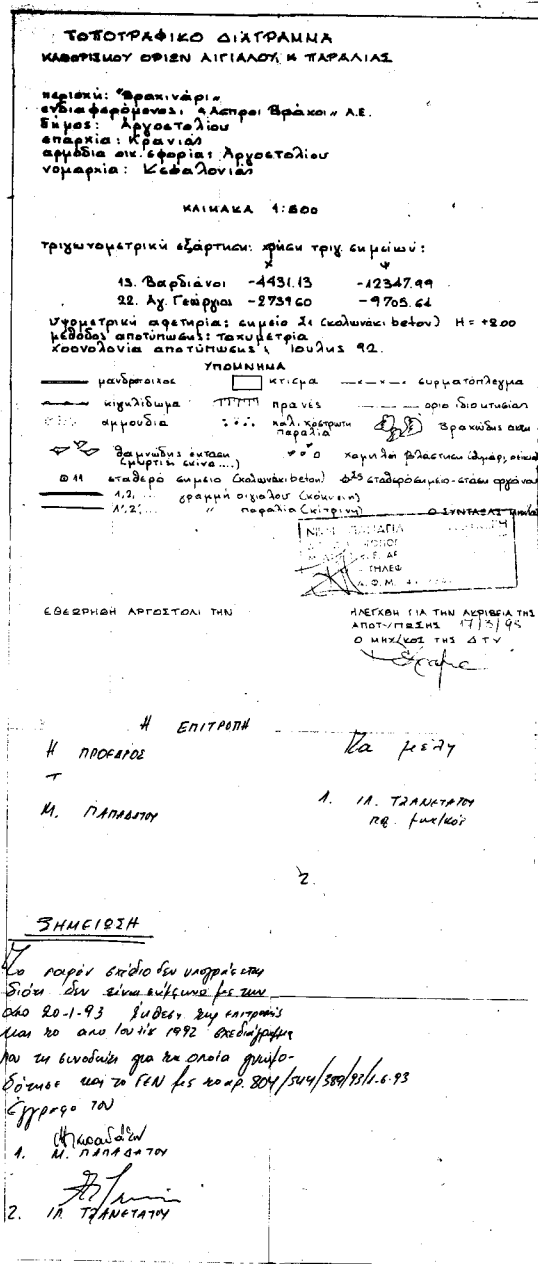 ΤΟΠΟΓΡΑΦΙΚΟ ΔΙΑΓΡΑΜΜΑ
ΚΑΘΟΡΙΣΜΟΥ ΟΡΙΩΝ ΑΙΓΙΑΛΟΥ, Κ ΠΑΡΑΛΙΑΣ
περιοχή: "Βρακινάρι"
ενδιαφερόμενος: "Άσπροι Βράχοι" Α.Ε.
δήμος: Αργοστολίου
επαρχία: Κρανιάς
αρμόδια οικ. εφορία: Αργοστολίου
νομαρχία: Κεφαλονιάς
ΚΛΙΜΑΚΑ 1:500
τριγωνομετρική εξάρτηση: χρήση τριγ. σημείων:
x ψ
13. Βαρδιάνοι -4431.13 -12347.99
22. Αγ. Γεώργιος -2739.60 -9705.61
Υψομετρική αφετηρία: σημείο Σ1 (κολωνάκι beton) H = +2.00
μέθοδος αποτύπωσης: ταχυμετρία
χρονολογία αποτύπωσης: Ιούλης 92.
ΥΠΟΜΝΗΜΑ
μανδρότοιχος κτίσμα συρματόπλεγμα
κιγκλίδωμα πρανές όριο ιδιοκτησίας
αμμουδιά χαλικόστρωτη παραλία βραχώδης
θαμνώδης έκταση (μυρτιές, σχίνα ....) χαμηλή βλάστηση
11 σταθερό σημείο (κολωνάκι beton) σταθερό σημείο-στάση οργάνου
1,2,... γραμμή αιγιαλού (κόκκινη)
1',2',... " παραλία (κίτρινη) Ο ΣΥΝΤΑΞΑΣ
ΤΗΛΕΦ
Α.Φ.Μ.
ΕΘΕΩΡΗΘΗ ΑΡΓΟΣΤΟΛΙ ΤΗΝ
ΗΛΕΓΧΘΗ ΓΙΑ ΤΗΝ ΑΚΡΙΒΕΙΑ ΤΗΣ
ΑΠΟΤΥΠΩΣΗΣ 17/3/95
Ο ΜΗΧ/ΚΟΣ ΤΗΣ ΔΤΥ
Η ΕΠΙΤΡΟΠΗ
Η ΠΡΟΕΔΡΟΣ
Τα μέλη
Μ. ΠΑΠΑΔΑΤΟΥ
1. ΙΛ. ΤΖΑΝΕΤΑΤΟΥ
πολ. μηχ/κός
2.
ΣΗΜΕΙΩΣΗ
Το παρόν σχέδιο δεν υπογράφεται
διότι δεν είναι σύμφωνο με την
από 20-1-93 έκθεση της επιτροπής
και το από Ιούλιο 1992 σχεδιάγραμμα
που τη συνοδεύει για τα οποία γνωμο-
δότησε και το ΓΕΝ με το αρ. 804/544/380/93/1.6.93
έγγραφό του
1. Μ. ΠΑΠΑΔΑΤΟΥ
2. ΙΛ. ΤΖΑΝΕΤΑΤΟΥ